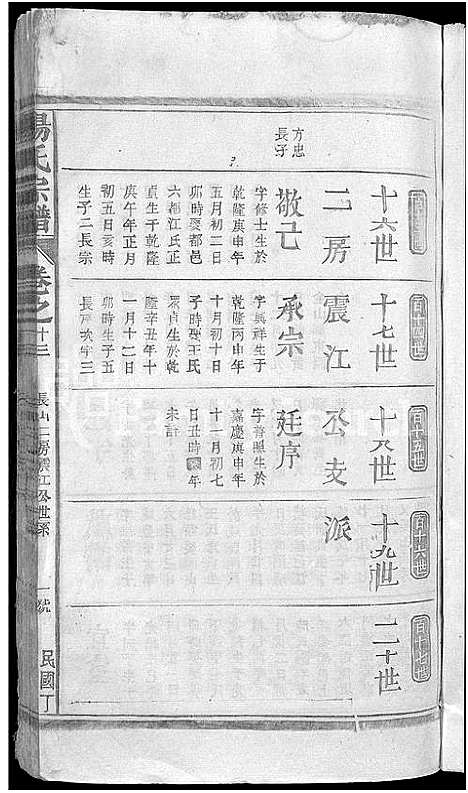 十六世
十七世
十八世
十九世
二十世
百十六世
百十七世
二房震江公支派
方忠長子
敬己
字修士生於
乾隆庚申年
五月初二日
卯時娶都邑
六都江氏正
貞生于乾隆
庚午年正月
初五日亥時
生子二長宗
承宗
字興祥生于
乾隆丙申年
十月初十日
子時娶王氏
生於乾
隆辛丑年十
一月十二日
卯時生子五
長序次字三
廷序
字青照生於
嘉慶庚申年
十一月初七
日丑時年
未計
楊氏宗譜
卷之十三
長山二房震江公世系
一號
民國丁